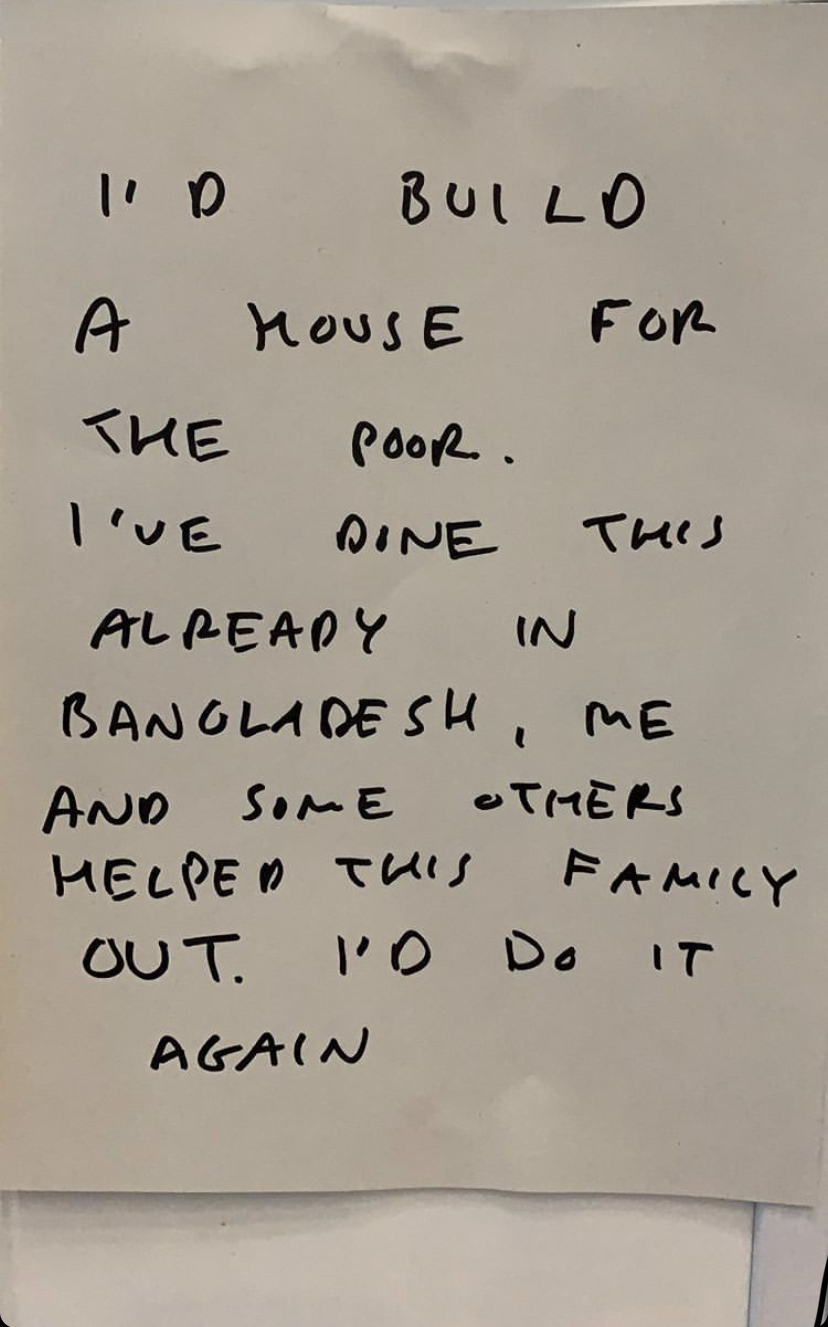 I'D BUILD
A HOUSE FOR
THE POOR.
I'VE DONE THIS
ALREADY IN
BANGLADESH, ME
AND SOME OTHERS
HELPED THIS FAMILY
OUT. I'D DO IT
AGAIN